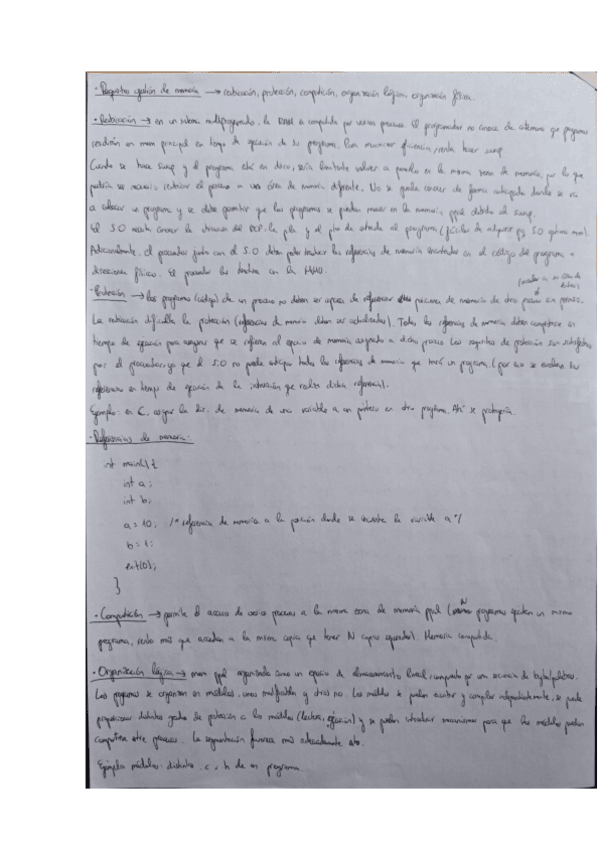 · Requisitos gestión de memoria → reubicación, protección, compartición, organización lógica, organización física.
· Reubicación → en un sistema multiprogramado, la RAM es compartida por varios procesos. El programador no conoce de antemano que programas
residirán en mem principal en tiempo de ejecución de su programa. Para maximizar eficiencia, renta hacer swap.
Cuando se hace swap y el programa está en disco, sería limitante volver a ponerlo en la misma zona de memoria, por lo que
podría ser necesario reubicar el proceso a una área de memoria diferente. No se puede conocer de forma anticipada donde se va
a colocar un programa y se debe permitir que los programas se puedan mover en la memoria ppal debido al swap.
El S.O necesita conocer la ubicación del BCP, la pila y el pto de entrada al programa (fáciles de adquirir pq S.O gestiona mem).
Adicionalmente, el procesador junto con el S.O deben poder traducir las referencias de memoria encontradas en el código del programa a
direcciones físicas. El procesador las traduce con la MMU.
· Protección → los programas (código) de un proceso no deben ser capaces de referenciar posiciones de memoria de otro proceso sin permiso.
La reubicación dificulta la protección (referencias de memoria deben ser actualizadas). Todas las referencias de memoria deben comprobarse en
tiempo de ejecución para asegurar que se refieren al espacio de memoria asignado a dicho proceso. Los requisitos de protección son satisfechos
por el procesador, ya que el S.O no puede anticipar todas las referencias de memoria que hará un programa. (por eso se evalúan las
referencias en tiempo de ejecución de la instrucción que realiza dicha referencia).
Ejemplo: en C, asignar la dir. de memoria de una variable a un puntero en otro programa. Ahí se protegería.
· Referencias de memoria:
int main() {
int a;
int b;
a = 10; /* referencia de memoria a la posición donde se encuentra la variable a */
b = 1;
exit(0);
}
· Compartición → permite el acceso de varios procesos a la misma zona de memoria ppal (N programas ejecutan un mismo
programa, renta más que accedan a la misma copia que tener N copias iguales). Memoria compartida.
· Organización lógica → mem ppal organizada como un espacio de almacenamiento lineal, compuesto por una secuencia de bytes/palabras.
Los programas se organizan en módulos, unos modificables y otros no. Los módulos se pueden escribir y compilar independientemente, se puede
proporcionar distintos grados de protección a los módulos (lectura, ejecución) y se pueden introducir mecanismos para que los módulos puedan
compartirse entre procesos. La segmentación funciona más adecuadamente
Ejemplo módulos: distintos .c, .h de un programa.